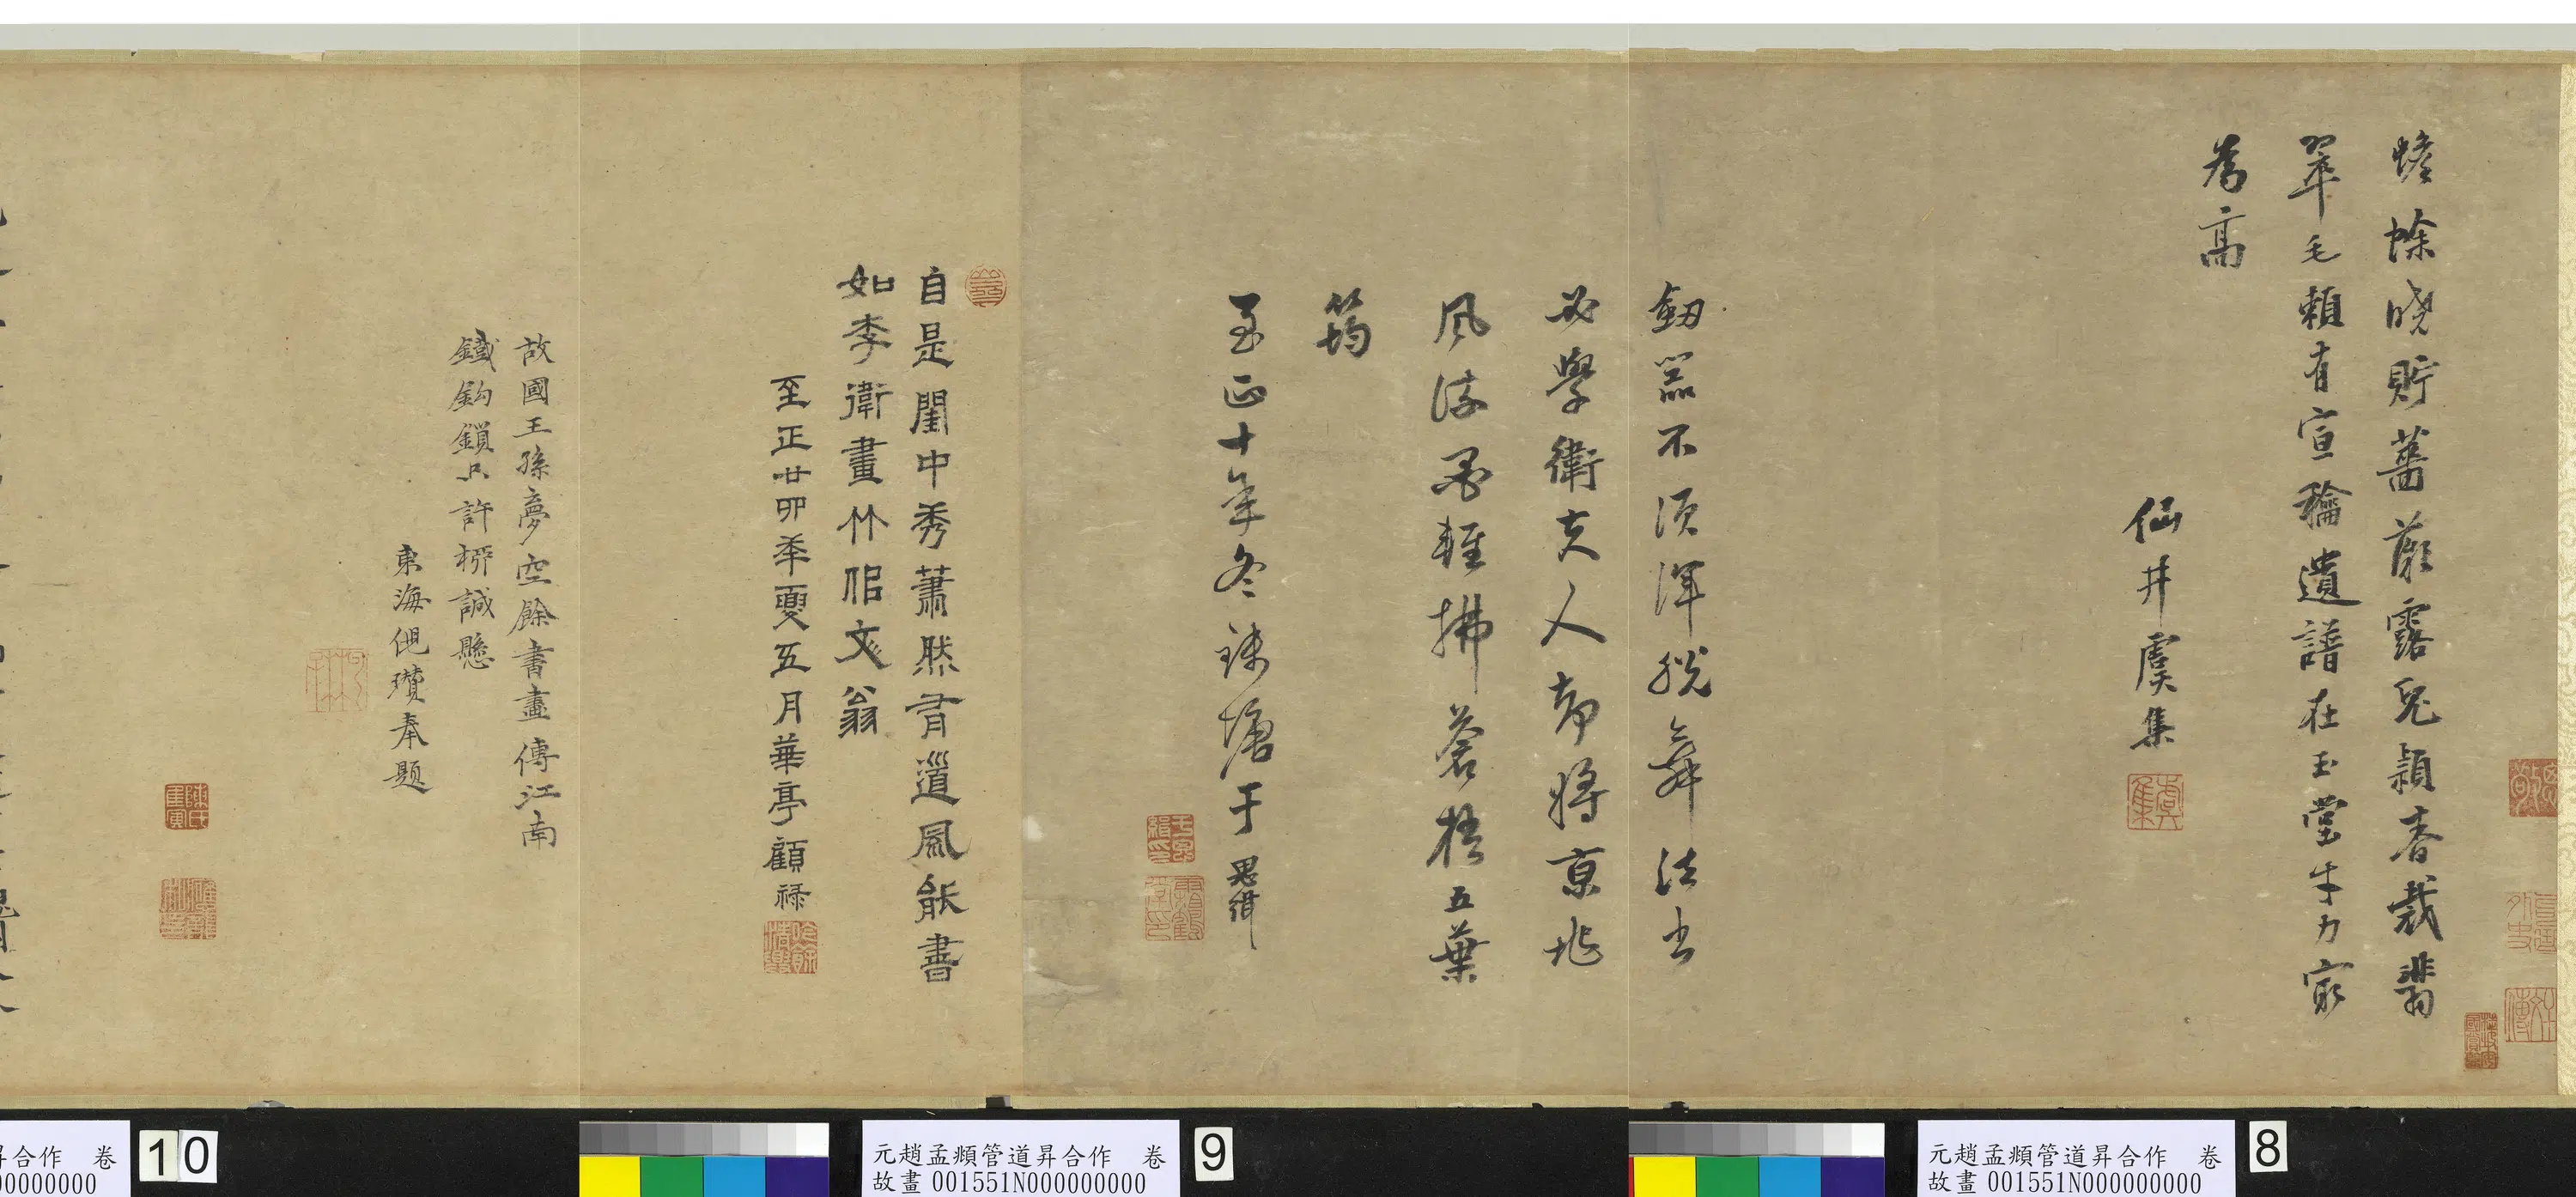 蟾蜍曉貯薔薇露兔穎香裁翡
翠毛賴有宣和遺譜在玉堂手力家
為高
仙井虞集
虞集
劒器不須渾脫舞法書
必學衛夫人却將京兆
風流墨輕拂蒼梧五葉
筠
至正十年冬錢塘于思緝
自是閨中秀蕭然有道風能書
如李衛畫竹佀文翁
至正廿卯年夏五月華亭顧祿
故國王孫夢空餘書畫傳江南
鐵鈎鎖只許柳誠懸
東海倪瓚奉題
元趙孟頫管道昇合作 卷
故畫 001551N000000000
8
元趙孟頫管道昇合作 卷
故畫 001551N000000000
9
昇合作 卷
00000000
10